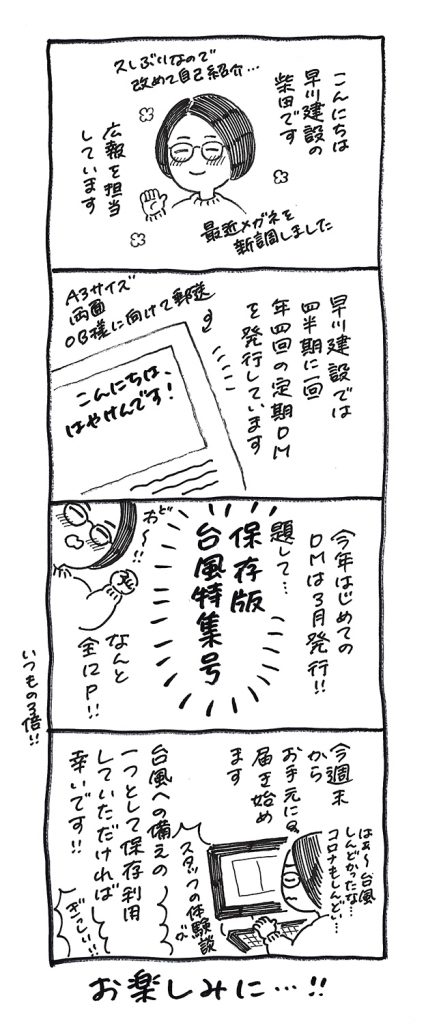 こんにちは
早川建設の
柴田です
久しぶりなので
改めて自己紹介…
広報を担当
しています
最近メガネを
新調しました
早川建設では
四半期に一回
年四回の定期DM
を発行しています
A3サイズ
両面
OB様に向けて郵送
こんにちは、
はやけんです!
今年はじめての
DMは3月発行!!
題して…
保存版
台風特集号
どお〜!!
なんと
全12P!!
いつもの3倍!!
今週末
から
お手元に
届き始め
ます
はぁ〜台風
しんどかったな…
コロナもしんどい…
スタッフの体験談が
ぎっしい!!
台風への備えの
一つとして保存利用
していただければ
幸いです!!
お楽しみに…!!